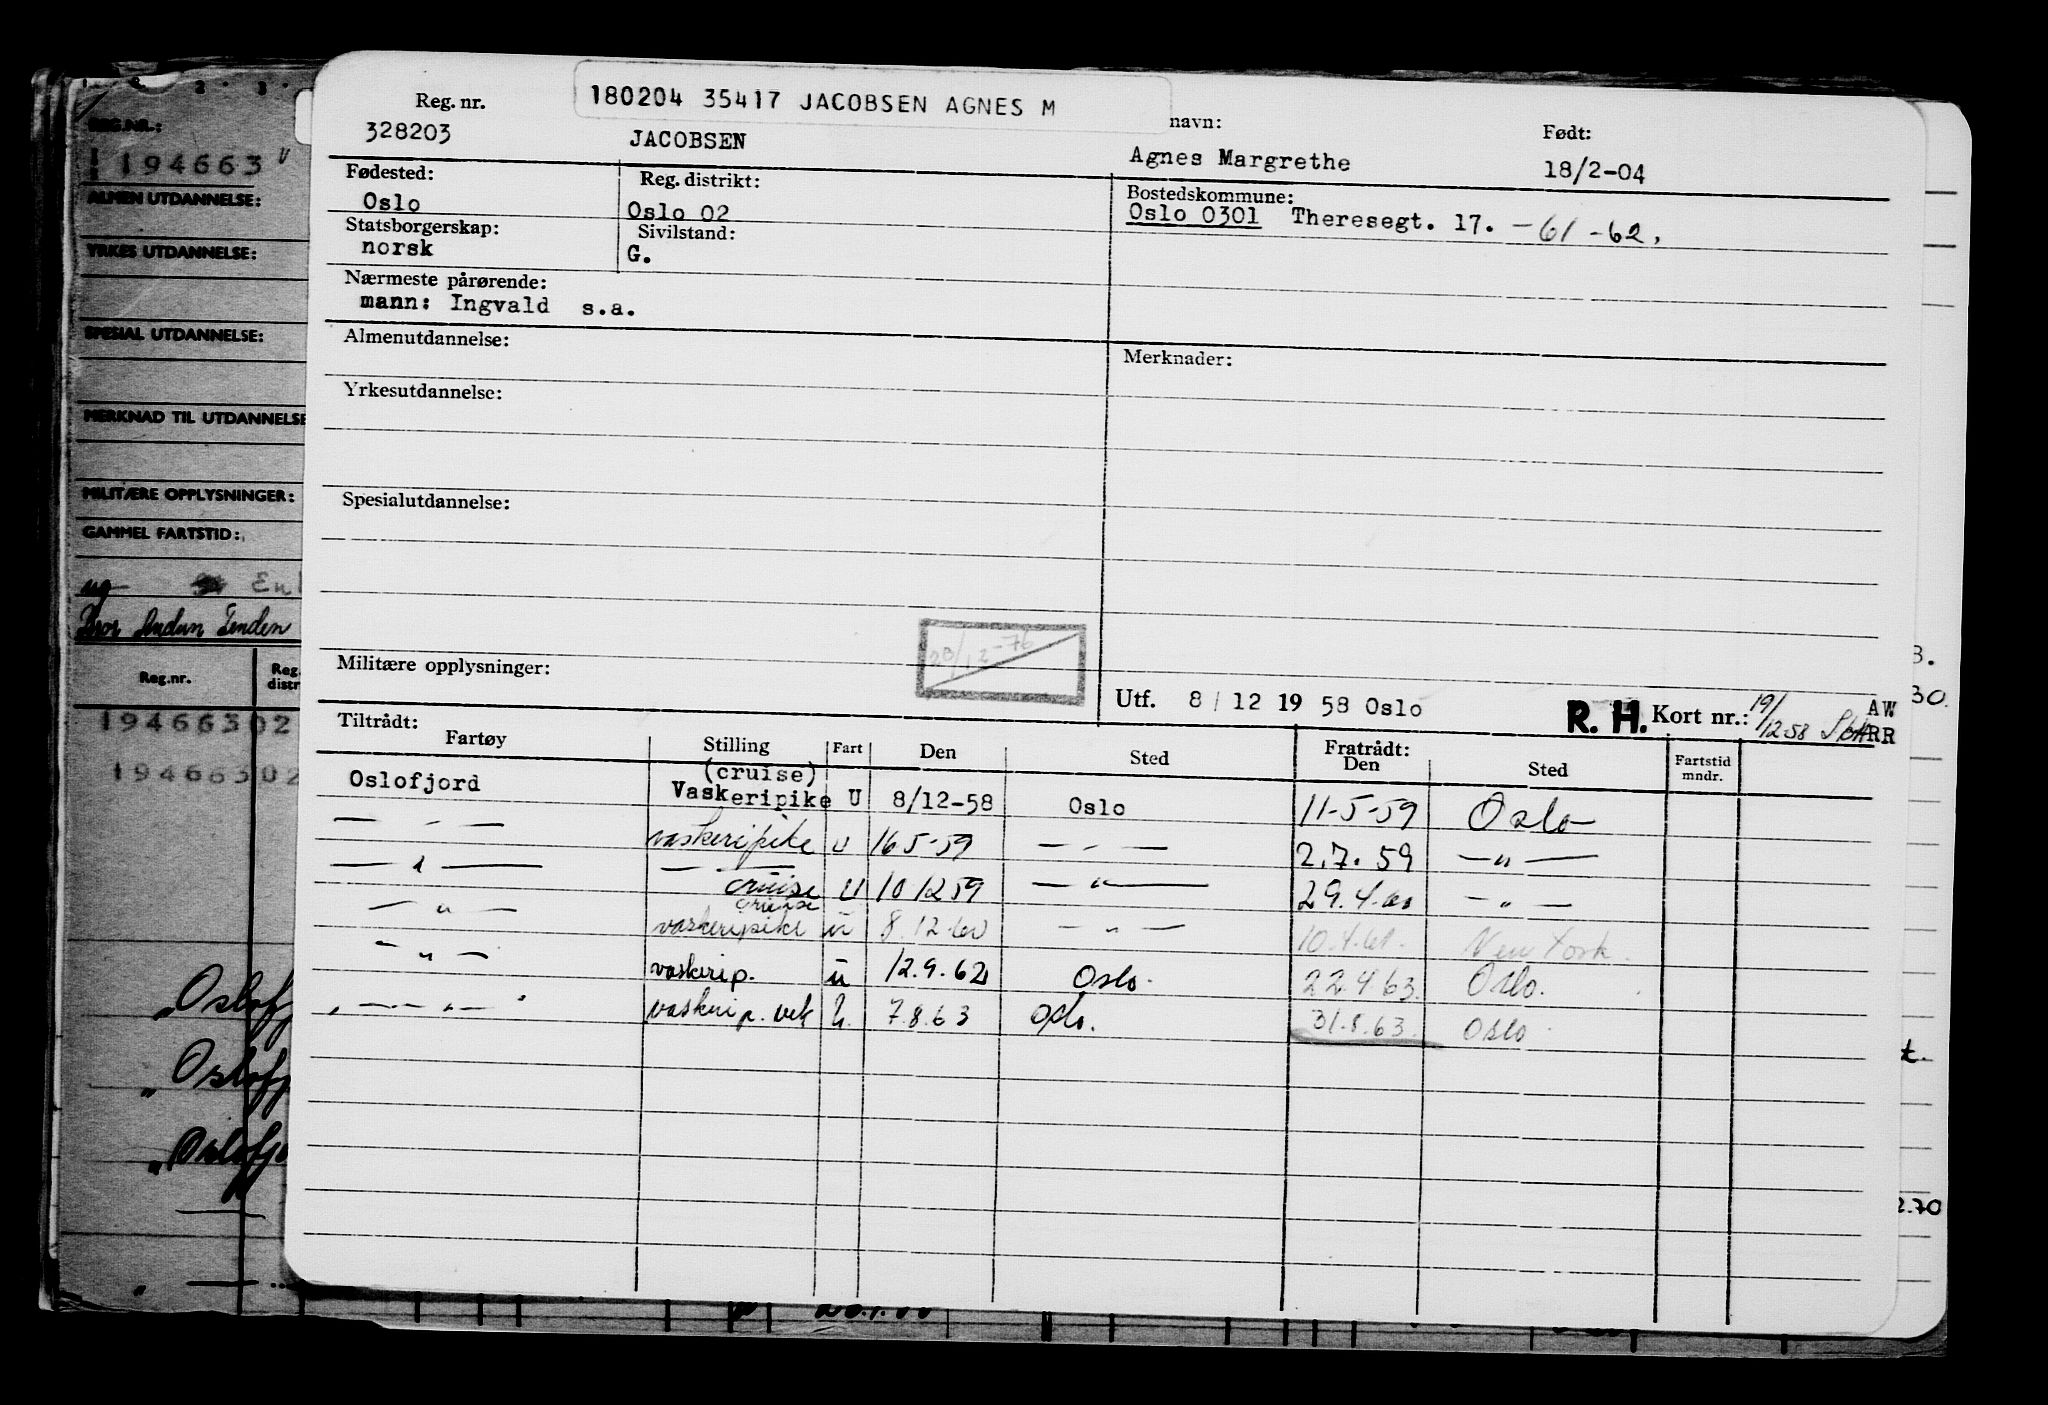 180204 35417 JACOBSEN AGNES M
Reg. nr.
328203
JACOBSEN
navn:
Agnes Margrethe
Født:
18/2-04
Fødested:
Oslo
Reg. distrikt:
Oslo 02
Bostedskommune:
Oslo 0301 Theresegt. 17. -61-62.
Statsborgerskap:
norsk
Sivilstand:
G.
Nærmeste pårørende:
mann: Ingvald s.a.
Almenutdannelse:
Merknader:
Yrkesutdannelse:
Spesialutdannelse:
Militære opplysninger:
28/12-76
Utf. 8/12 1958 Oslo
R. H. Kort nr.: 19/12 58
AW
RR
Tiltrådt:
Fartøy Stilling Fart Den Sted
Fratrådt:
Den Sted Fartstid mndr.
Oslofjord (cruise) Vaskeripike U 8/12-58 Oslo 11-5-59 Oslo
— " — vaskeripike u 16 5-59 — " — 2.7. 59 — " —
— " — — " — cruise U 10 12 59 — " — 29.4.60 — " —
— " — cruise vaskeripike u 8.12.60 — " — 10.4.61. New York.
— " — vaskerip. u 12.9.62 Oslo. 22 4 63. Oslo.
— " — vaskerip. vik U. 7.8.63 Oslo. 31.8.63. Oslo
REG.NR.:
194663 U
ALMEN UTDANNELSE:
YRKES UTDANNELSE:
SPESIAL UTDANNELSE:
MERKNAD TIL UTDANNELSE
MILITÆRE OPPLYSNINGER:
GAMMEL FARTSTID:
ug
Enk
Reg.nr. Reg. distr
194663 02
194663 02
"Oslofj
"Oslofj
"Oslofjo
3.
30.
t.
2.70